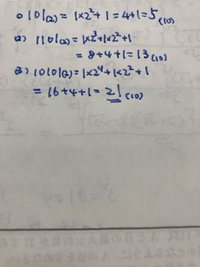 (1) 101₍₂₎ = 1×2²+1 = 4+1 = 5₍₁₀₎
(2) 1101₍₂₎ = 1×2³+1×2²+1
= 8+4+1 = 13₍₁₀₎
(3) 10101₍₂₎ = 1×2⁴+1×2²+1
= 16+4+1 = 21₍₁₀₎